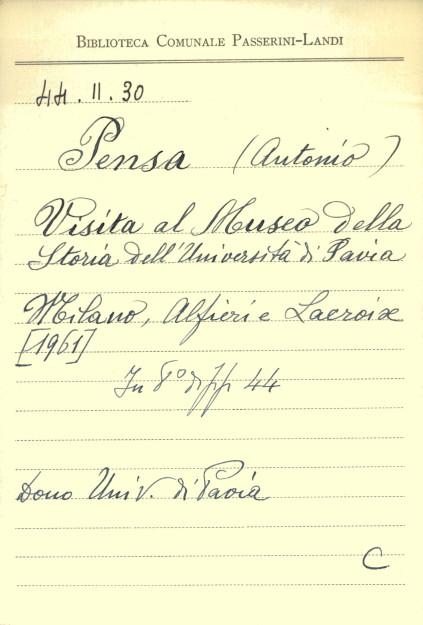 BIBLIOTECA COMUNALE PASSERINI-LANDI
44.II.30
Pensa (Antonio)
Visita al Museo della
Storia dell'Università di Pavia
Milano, Alfieri e Lacroix
[1961]
In 8° di pp 44
Dono Univ. di Pavia
C